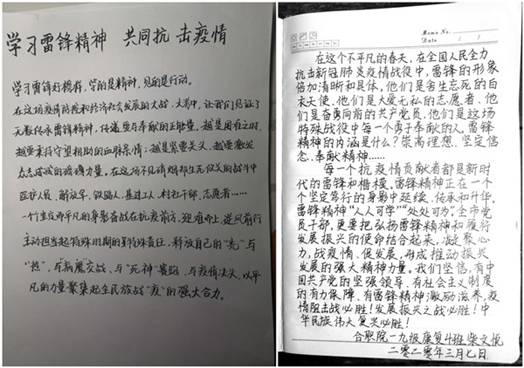 学习雷锋精神 共同抗击疫情
学习雷锋好榜样，学的是精神，见的是行动。
在这场疫情防控和经济社会发展的大战、大考中，让我们见证了
无数传承雷锋精神，传递爱与奉献的正能量。越是困难之时，
越要秉持守望相助的血脉亲情；越是紧要关头，越要激发
众志成城的磅礴力量。在这场不见硝烟却生死攸关的战斗中
医护人员、解放军、铁路人、基建工人、村社干部、志愿者……
一个个出而平凡的身影奋战在抗疫前方，迎难而上、逆风前行
主动担当起特殊时期的特殊责任，释放自己的“光”与
“热”，与病魔交战，与“死神”赛跑，与疫情决战，以平
凡的力量聚集起全民族战“疫”的强大合力。
Memo No.
Date
在这个不平凡的春天，在全国人民全力
抗击新冠肺炎疫情战役中，雷锋的形象
倍加清晰和具体，他们是舍生忘死的白
衣天使，他们是大爱无私的志愿者，他
们是奋勇向前的共产党员，他们是这场
特殊战役中每一个勇于奉献的人，雷锋
精神的内涵是什么？崇高理想、坚定信
念、奉献精神……
每一个抗疫情贡献者都是新时
代的雷锋和楷模，雷锋精神正在一个
个坚定前行的身影中延续、传承和升华，
雷锋精神“人人可学”“处处可为”，全市党
员干部，更要把弘扬雷锋精神和履行
发展振兴的使命结合起来，凝聚心
力，战疫情、促发展，形成推动振兴
发展的强大精神力量。我们坚信，有中
国共产党的坚强领导，有社会主义制度
的有力保障，有雷锋精神激励滋养，疫
情阻击战必胜！发展振兴之战必胜！中
华民族伟大复兴必胜！
合职院一九级康复4班柴文悦
二零二零年三月七日